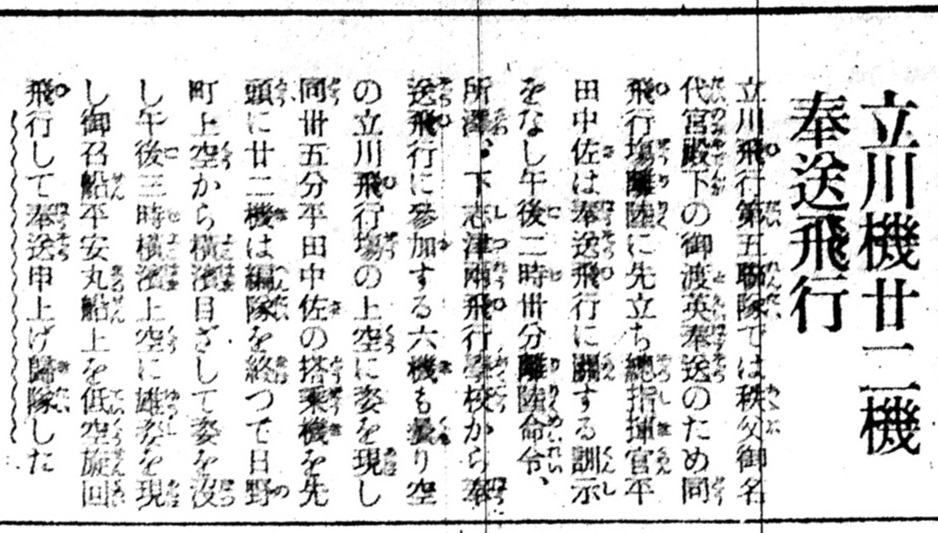 立川機廿二機
奉送飛行
立川飛行第五聯隊では秩父御名
代宮殿下の御渡英奉送のため同
飛行場離陸に先立ち總指揮官平
田中佐は奉送飛行に關する訓示
をなし午後二時卅分離陸命令、
所澤、下志津兩飛行學校から奉
送飛行に參加する六機も曇り空
の立川飛行場の上空に姿を現し
同卅五分平田中佐の搭乘機を先
頭に廿二機は編隊を終つて日野
町上空から横濱目ざして姿を沒
し午後三時横濱上空に雄姿を現
し御召船平安丸船上を低空旋回
飛行して奉送申上げ歸隊した